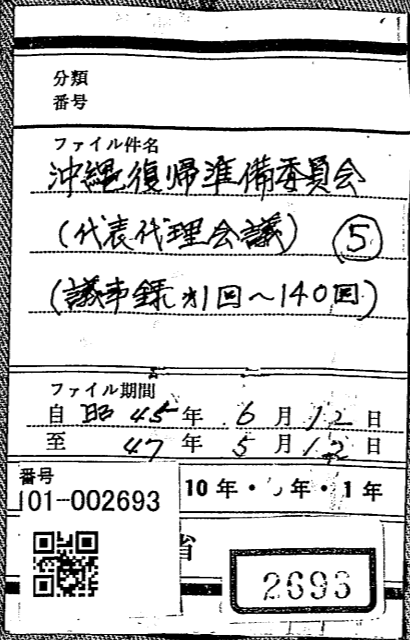 分類
番号
ファイル件名
沖縄復帰準備委員会
(代表代理会議) ⑤
(議事録 才1回～140回)
ファイル期間
自 昭 45年 6月 12日
至 47年 5月 12日
番号
101-002693
10年・年・1年
省
2693